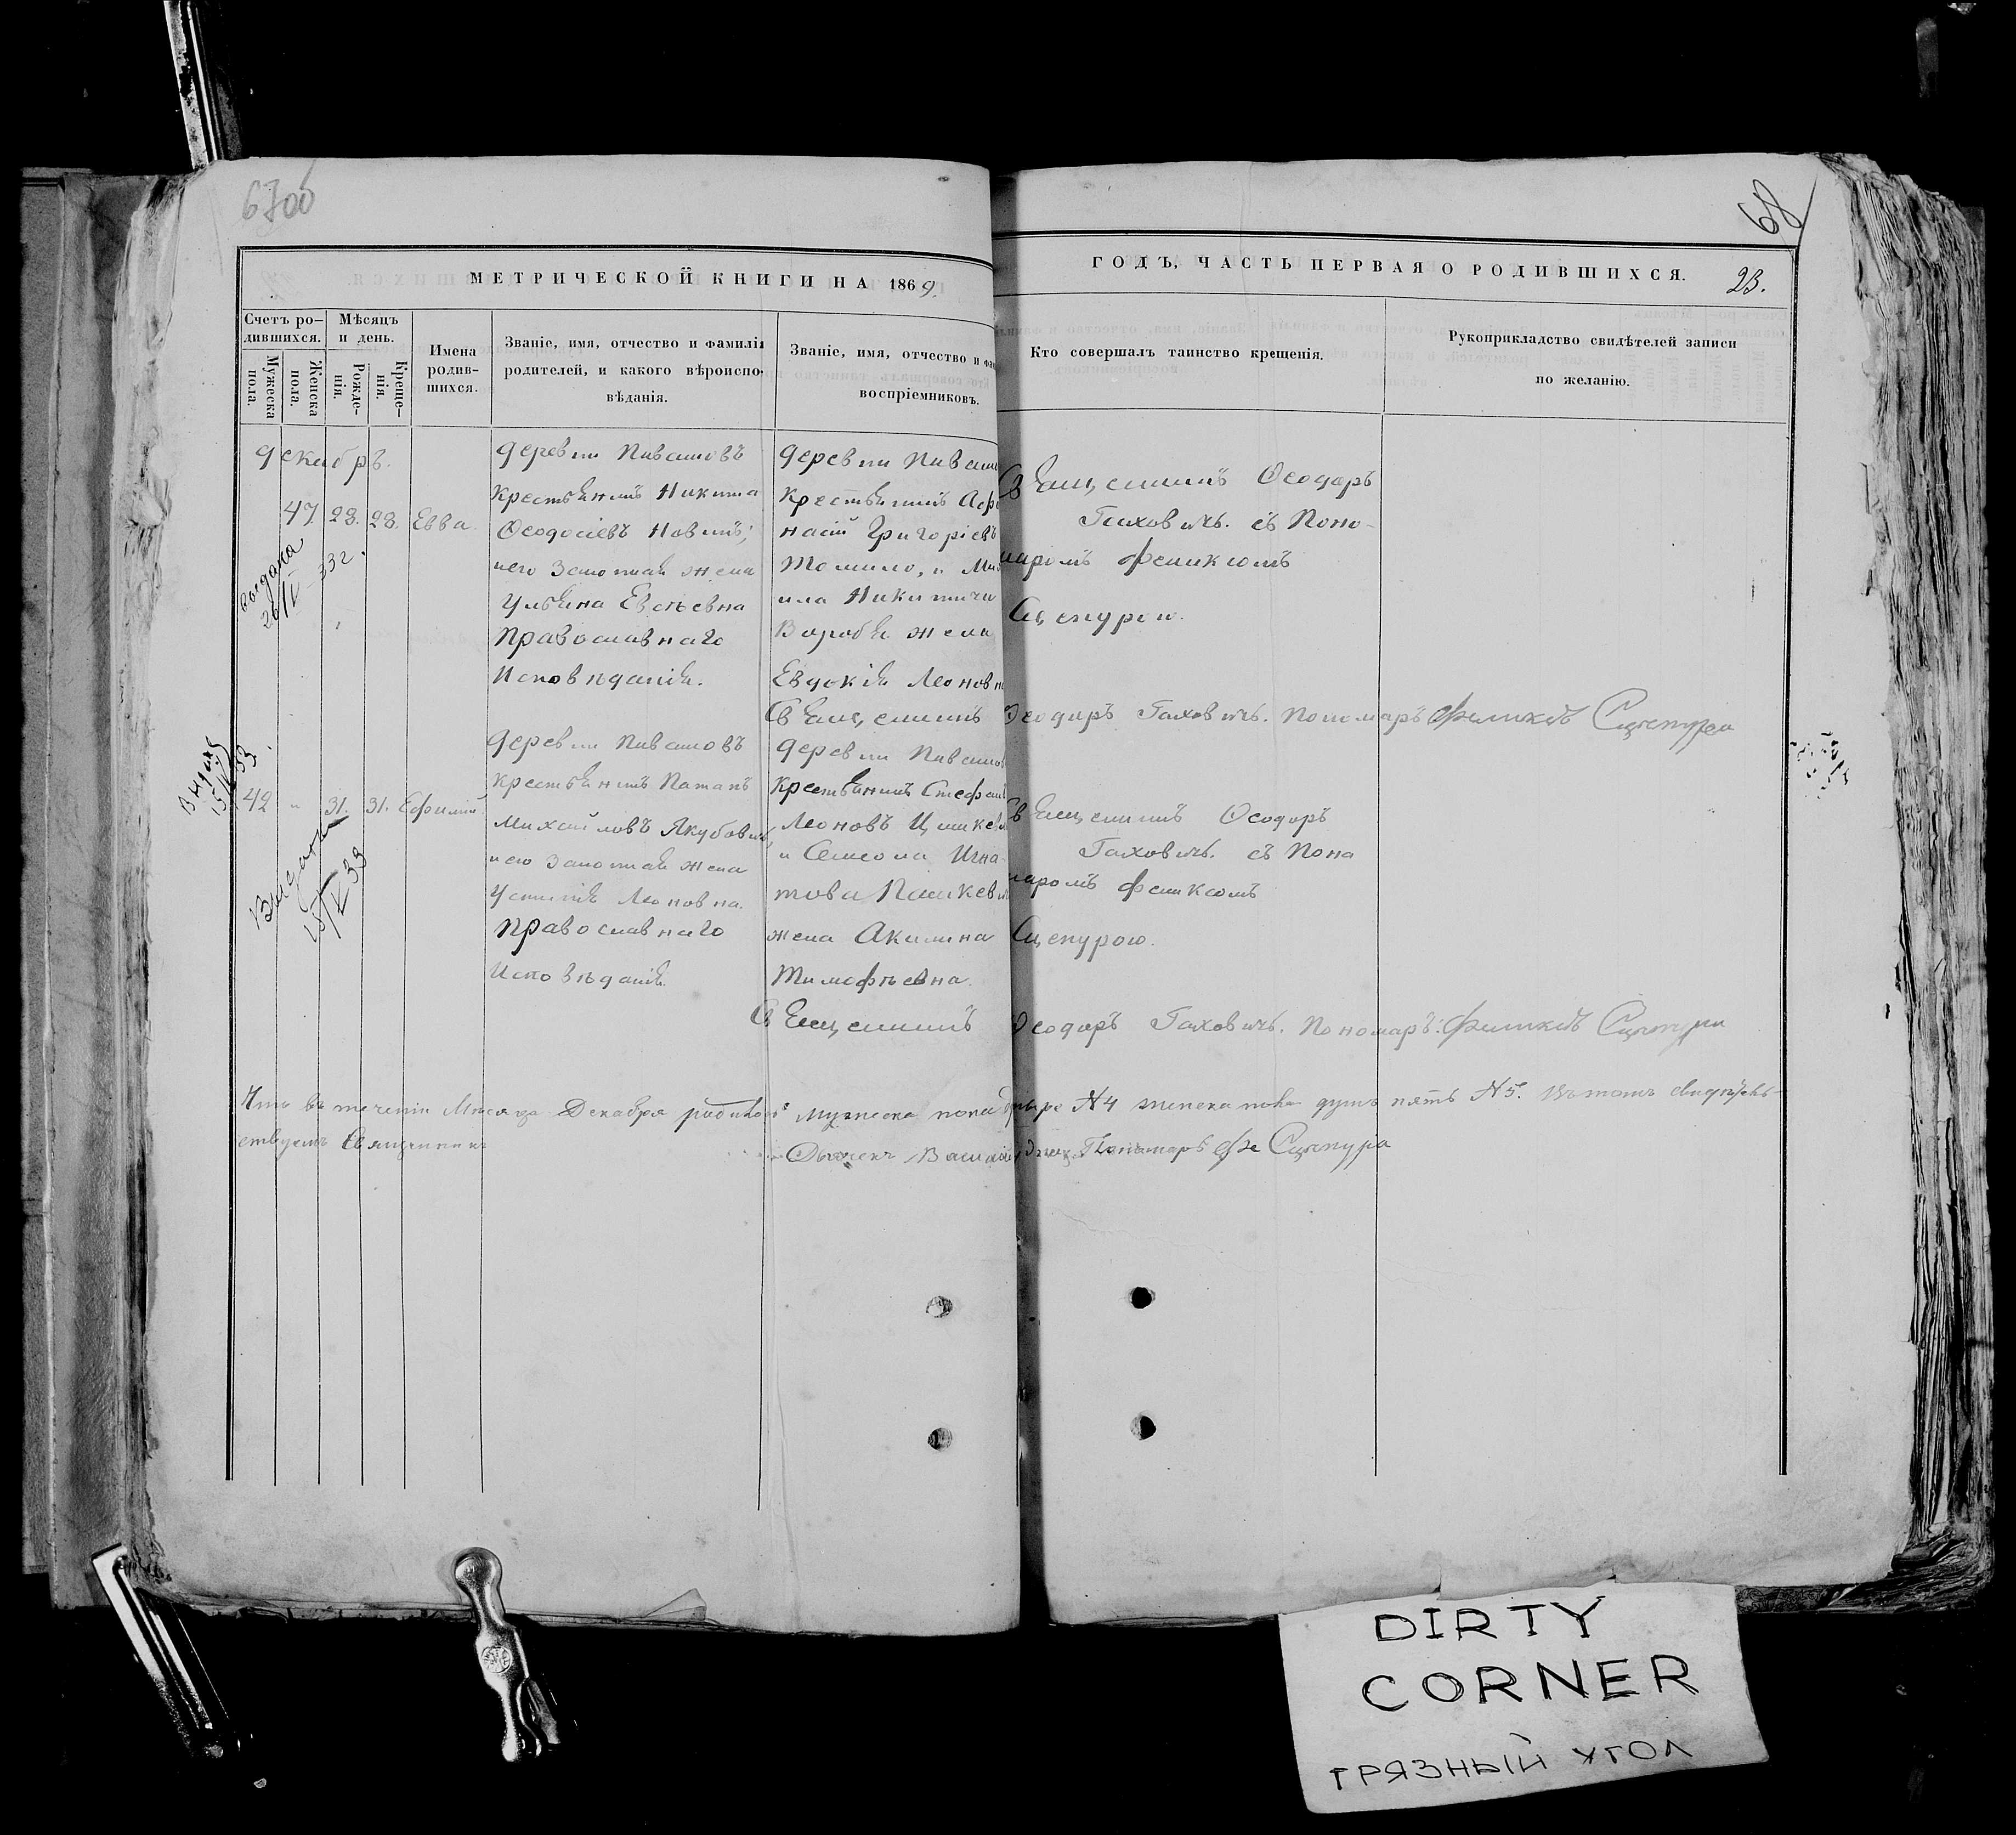 67об
68
МЕТРИЧЕСКОЙ КНИГИ НА 1869.
ГОДЪ, ЧАСТЬ ПЕРВАЯ О РОДИВШИХСЯ.
23.
Счетъ ро-
дившихся.
Мужеска
пола.
Женска
пола.
Мѣсяцъ
и день.
Рожде-
нія.
Креще-
нія.
Имена
родив-
шихся.
Званіе, имя, отчество и фамилія
родителей, и какого вѣроиспо-
вѣданія.
Званіе, имя, отчество и фам
воспріемниковъ.
Кто совершалъ таинство крещенія.
Рукоприкладство свидѣтелей записи
по желанію.
декабрь.
47. 28. 28. Евва.
выдана
26/IV 33г.
деревни Пивашовъ
крестьянинъ Никита
Ѳеодосіевъ
него законная жена
Ульяна Евсѣевна
Православнаго
Исповѣданія.
деревни Пиваш
крестьянинъ Афа
насій Григоріевъ
Томило, и Ми
ила Никитича
Воробья жена
Евдокія Леоновн
Священникъ Ѳеодоръ
Гаховичъ. съ Поно-
маромъ Феликсомъ
Сцепурою.
Священникъ Ѳеодоръ Гаховичъ. Пономаръ Феликсъ Сцепура
Выдан
15/IV 33.
42 " 31. 31. Ефимій
Выдана
15/IV 33
деревни Пивашовъ
крестьянинъ Патапъ
Михайловъ Якубовичъ,
него законная жена
Устинія Леоновна.
Православнаго
Исповѣданія.
деревни Пивашов
крестьянинъ Стефанъ
Леоновъ
и Семена Игна-
това Пашкеви
жена Акилина
Тимофѣевна.
Священникъ Ѳеодоръ
Гаховичъ. съ Поно
маромъ Феликсомъ
Сцепурою.
Священникъ Ѳеодоръ Гаховичъ. Пономаръ: Феликсъ Сцепура
Что въ теченіи Мѣсяца Декабря родилось мужеска пола четыре №4 женска пола душъ пять №5. Въ томъ свидѣтель-
ствуемъ Священникъ
Дьячекъ Василій Пономаръ Фе Сцепура
DIRTY
CORNER
ГРЯЗНЫЙ УГОЛ